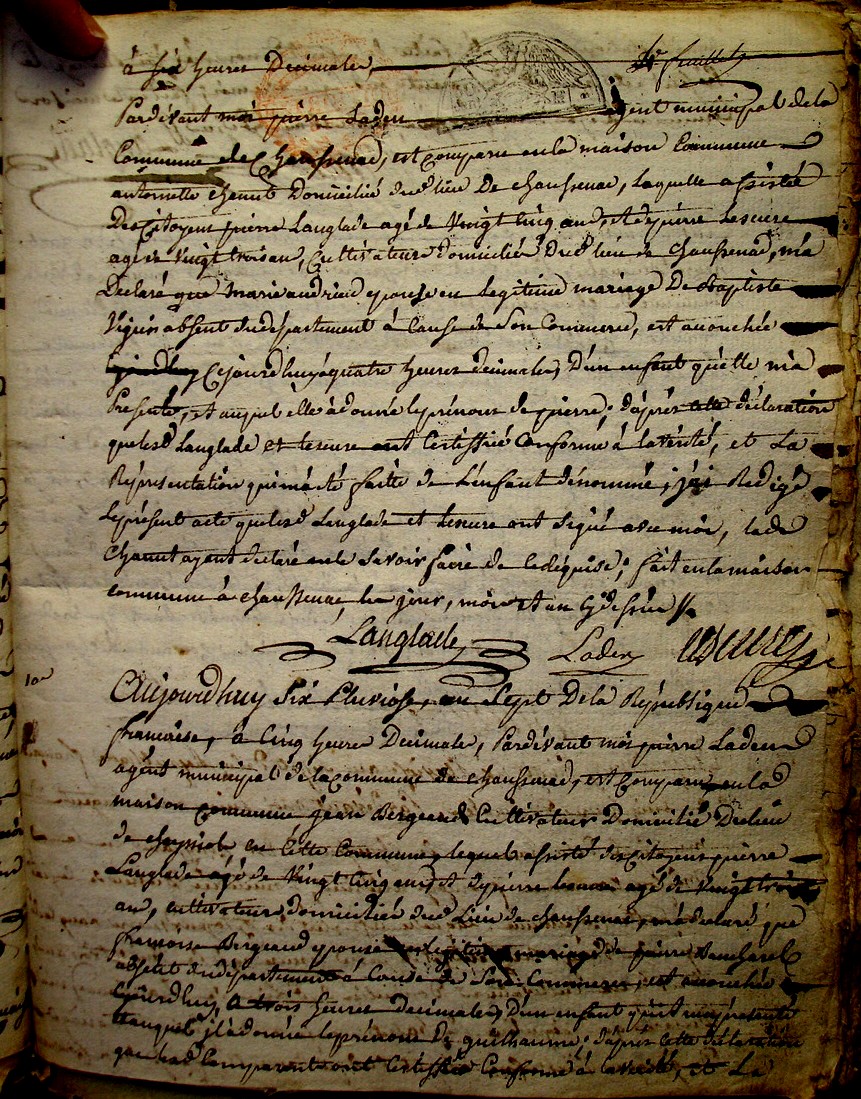 à six heures Decimales, 4e feuillet
Pardevant moi pierre Laden agent municipal de la
Commune de Chaussenac, est Comparu en la maison Commune
antoinette chanut Domicilié dud. lieu De chaussenac, laquelle assistée
Des Citoyens pierre Langlade agé de Vingt Cinq ans, et de pierre Lescure
agé de Vingt trois ans, Cultivateurs domiciliés Dud. lieu de Chaussenac, m'a
Declaré que marie andrieud epouse en Legitime mariage De Baptiste
Vigier absent du departement à Cause de Son Commerce, est accouchée
Cejourdhuy à quatre heures decimales, D'un enfant qu'elle m'a
Presenté, et auquel elle à donné le prénom de pierre; d'après cette déclaration
que lesd. Langlade et lescure ont Certiffié Conforme à la vérité, et La
Représentation qui m'a été faitte de L'enfant dénommé; j'ai Redigé
Le présent acte que lesd. Langlade et lescure ont signé avec moi, lade
Chanut ayant declaré ne le Savoir faire de ce requise; fait en la maison
commune à chaussenac les jour, mois et an
Langlade Laden Lescure
Aujourdhuy Six Pluviose, an Sept De la République
francaise, à Cinq heures Decimales, Pardevant moi pierre Laden
agent municipal de la Commune de Chaussenac, est Comparu en la
maison Commune jean Bergeaud Cultivateur Domicilié Du lieu
de en Cette Commune, lequel assisté des Citoyens pierre
Langlade agé de Vingt Cinq ans, et de pierre lescure agé de Vingt trois
ans, cultivateurs domiciliés dud. Lieu de chaussenac, m'a declaré que
francoise Bergeaud epouse en legitime mariage de pierre
absent du departement à Cause de Son Commerce, est accouchée
Cejourdhuy, à trois heures Decimales, D'un enfant qu'il m'a présenté
et auquel il à donné le prénom De guilhaume; d'après cette déclaration
que lesd. Comparants ont Certiffié Conforme à la vérité, et La